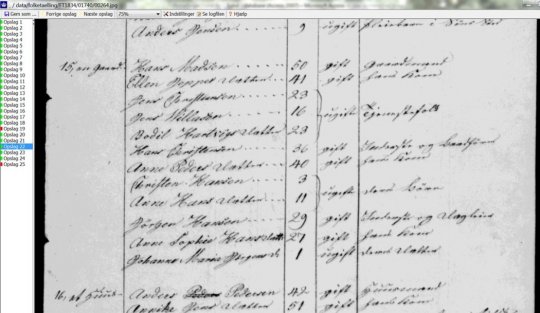 ../ data/folketaelling/FT1834/01740/00264.jpg
Gem som ... Forrige opslag Næste opslag 75% Indstillinger Se logfilen Hjælp
Opslag 1
Opslag 2
Opslag 3
Opslag 4
Opslag 5
Opslag 6
Opslag 7
Opslag 8
Opslag 9
Opslag 10
Opslag 11
Opslag 12
Opslag 13
Opslag 14
Opslag 15
Opslag 16
Opslag 17
Opslag 18
Opslag 19
Opslag 20
Opslag 21
Opslag 22
Opslag 23
Opslag 24
Opslag 25
Anders Jensen 9 ugift
15, en Gaard Hans Madsen 50 gift Gaardmand
Ellen Jeppes Datter 41 gift hans Kone
Jens Christensen 23
Jens Willadsen 16 ugift Tjenestefolk
Bodil Datter 23
Hans Christensen 36 gift Inderste og
Anne Peders Datter 40 gift hans Kone
Christen Hansen 3
ugift deres Børn
Anne Hans Datter 11
Jørgen Hansen 29 gift Inderste og Daglejer
Anne Sophie Hans Datter 27 gift hans Kone
Johanne Marie Jørgens D. 1 ugift deres Datter
16, et Huus Anders Pedersen 42 gift Huusmand
Annike Jens Datter 51 gift hans Kone